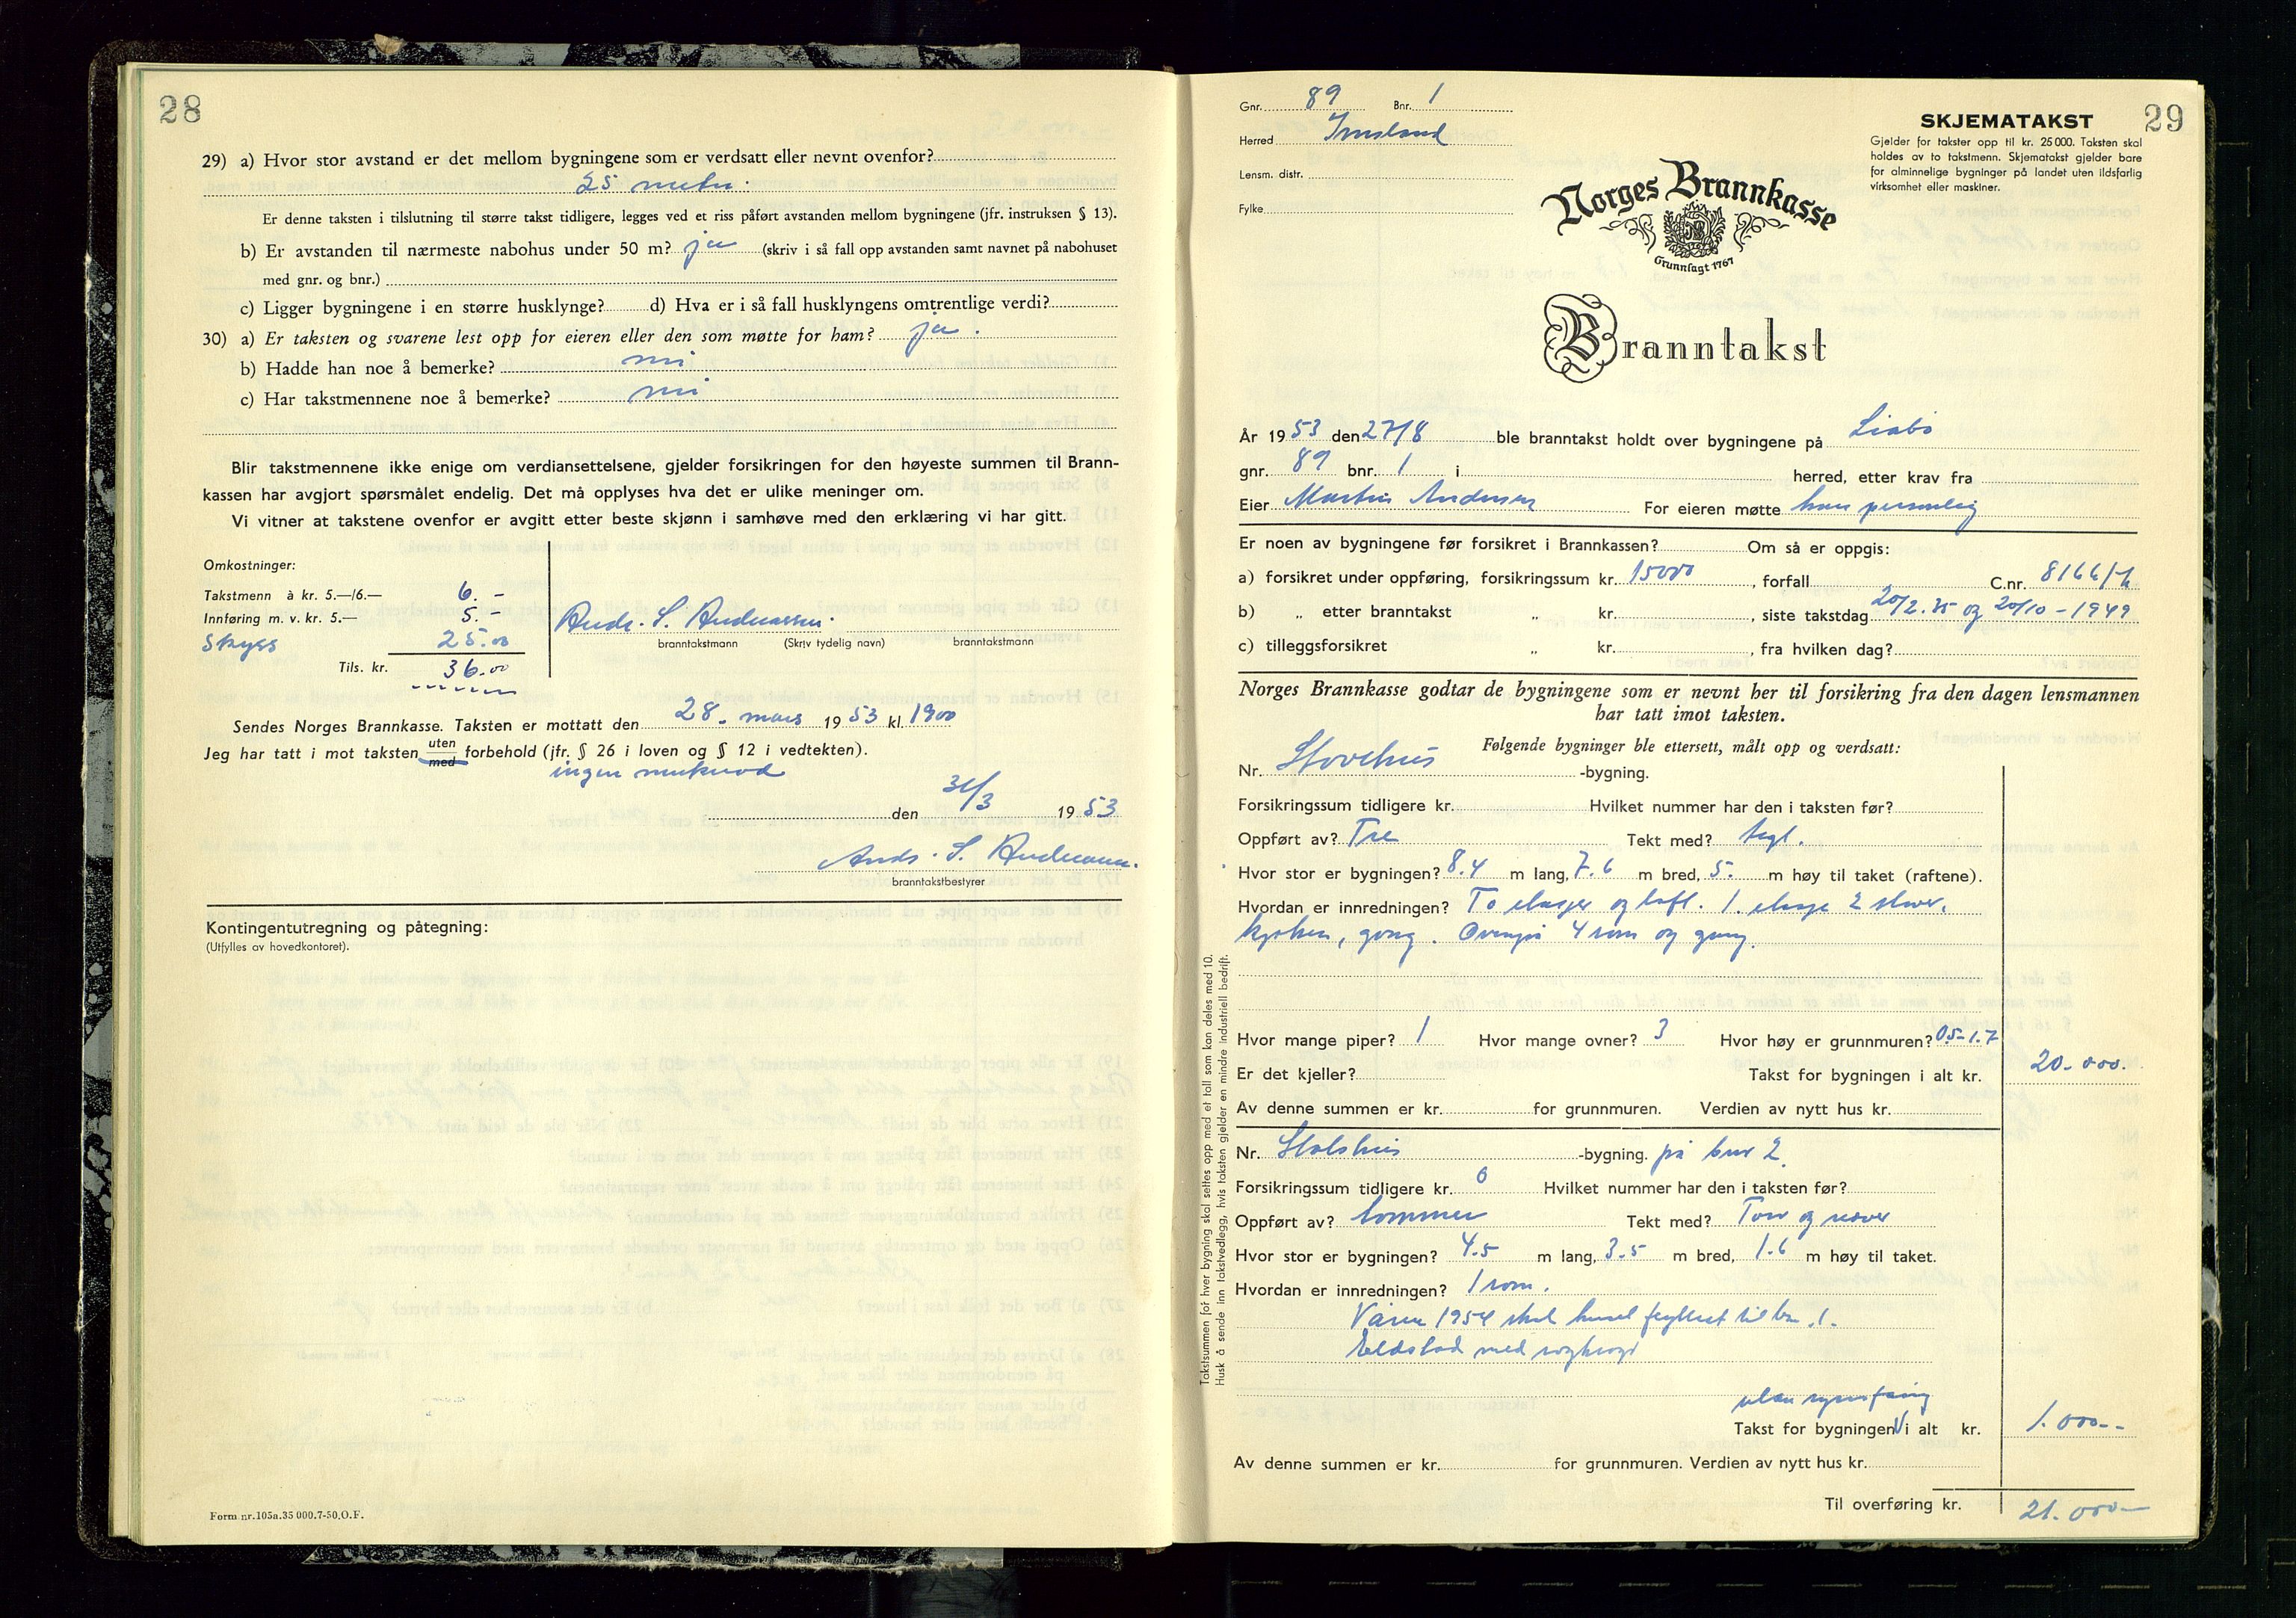 28
29) a) Hvor stor avstand er det mellom bygningene som er verdsatt eller nevnt ovenfor?
25 meter.
Er denne taksten i tilslutning til større takst tidligere, legges ved et riss påført avstanden mellom bygningene (jfr. instruksen § 13).
b) Er avstanden til nærmeste nabohus under 50 m? ja (skriv i så fall opp avstanden samt navnet på nabohuset
med gnr. og bnr.)
c) Ligger bygningene i en større husklynge? d) Hva er i så fall husklyngens omtrentlige verdi?
30) a) Er taksten og svarene lest opp for eieren eller den som møtte for ham? ja.
b) Hadde han noe å bemerke? nei
c) Har takstmennene noe å bemerke? nei
Blir takstmennene ikke enige om verdiansettelsene, gjelder forsikringen for den høyeste summen til Brann-
kassen har avgjort spørsmålet endelig. Det må opplyses hva det er ulike meninger om.
Vi vitner at takstene ovenfor er avgitt etter beste skjønn i samhøve med den erklæring vi har gitt.
Omkostninger:
Takstmenn à kr. 5.—/6.— 6.-
Innføring m. v. kr. 5.— 5.-
Skyss 25.00
Tils. kr. 36.00
Ands. S. Andreassen.
branntakstmann (Skriv tydelig navn) branntakstmann
Sendes Norges Brannkasse. Taksten er mottatt den 28. mars 1953 kl. 1900
Jeg har tatt i mot taksten uten med forbehold (jfr. § 26 i loven og § 12 i vedtekten).
ingen
den 31/3 1953
Ands. S. Andreassen.
branntakstbestyrer
Kontingentutregning og påtegning:
(Utfylles av hovedkontoret).
Form nr.105a.35 000.7-50.O.F.
29
Gnr. 89 Bnr. 1
Herred Imsland
Lensm. distr.
Fylke
SKJEMATAKST
Gjelder for takster opp til kr. 25 000. Taksten skal
holdes av to takstmenn. Skjematakst gjelder bare
for alminnelige bygninger på landet uten ildsfarlig
virksomhet eller maskiner.
Norges Brannkasse
Grunnlagt 1767
Branntakst
År 1953 den 27/8 ble branntakst holdt over bygningene på Liabø
gnr. 89 bnr. 1 i herred, etter krav fra
Eier Martin Andersen For eieren møtte han personlig
Er noen av bygningene før forsikret i Brannkassen? Om så er oppgis:
a) forsikret under oppføring, forsikringssum kr. 15000, forfall C.nr. 8166/
b) „ etter branntakst „ kr. , siste takstdag 20/2.35 og 20/10-1949
c) tilleggsforsikret „ kr. , fra hvilken dag?
Norges Brannkasse godtar de bygningene som er nevnt her til forsikring fra den dagen lensmannen
har tatt imot taksten.
Følgende bygninger ble ettersett, målt opp og verdsatt:
Nr. Stovehus -bygning.
Forsikringssum tidligere kr. Hvilket nummer har den i taksten før?
Oppført av? Tre Tekt med? tegl.
Hvor stor er bygningen? 8.4 m lang, 7.6 m bred, 5. m høy til taket (raftene).
Hvordan er innredningen? To etasjer og loft. 1. etasje 2 stuer.
kjøken, gang. Ovenpå 4 rom og gang.
Hvor mange piper? 1 Hvor mange ovner? 3 Hvor høy er grunnmuren? 0.5-1.7
Er det kjeller? Takst for bygningen i alt kr. 20.000.
Av denne summen er kr. for grunnmuren. Verdien av nytt hus kr.
Nr. Stølshus -bygning. på bnr 2.
Forsikringssum tidligere kr. 0 Hvilket nummer har den i taksten før?
Oppført av? tømmer Tekt med? Torv og never
Hvor stor er bygningen? 4.5 m lang, 3.5 m bred, 1.6 m høy til taket.
Hvordan er innredningen? 1 rom.
Våren 1954 skal huset flyttest til bn. 1.
Eldstad med
utan
Takst for bygningen i alt kr. 1.000--
Av denne summen er kr. for grunnmuren. Verdien av nytt hus kr.
Til overføring kr. 21.000-
Takstsummen for hver bygning skal settes opp med et tall som kan deles med 10.
Husk å sende inn takstvedlegg, hvis taksten gjelder en mindre industriell bedrift.